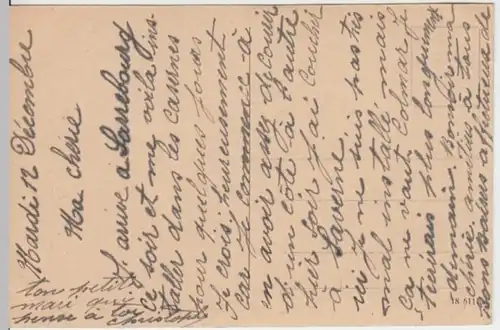 Mardi 12 Décembre
Ma chérie
J'arrive à Sarrebourg
ce soir et me voilà ins-
taller dans les casernes
pour quelques jours
je crois heureusement
car je commence à
en avoir assez de courir
d'un côté à l'autre
hier soir j'ai coucher
à Saverne
ici je ne suis pas très
mal installé mais
ça ne vaut Colmar je
t'écrirais plus longuement
demain. Bonjour ma
chérie amitiés à tous
bons baisers affectueux de
ton petit
mari qui
pense à toi
Christophe